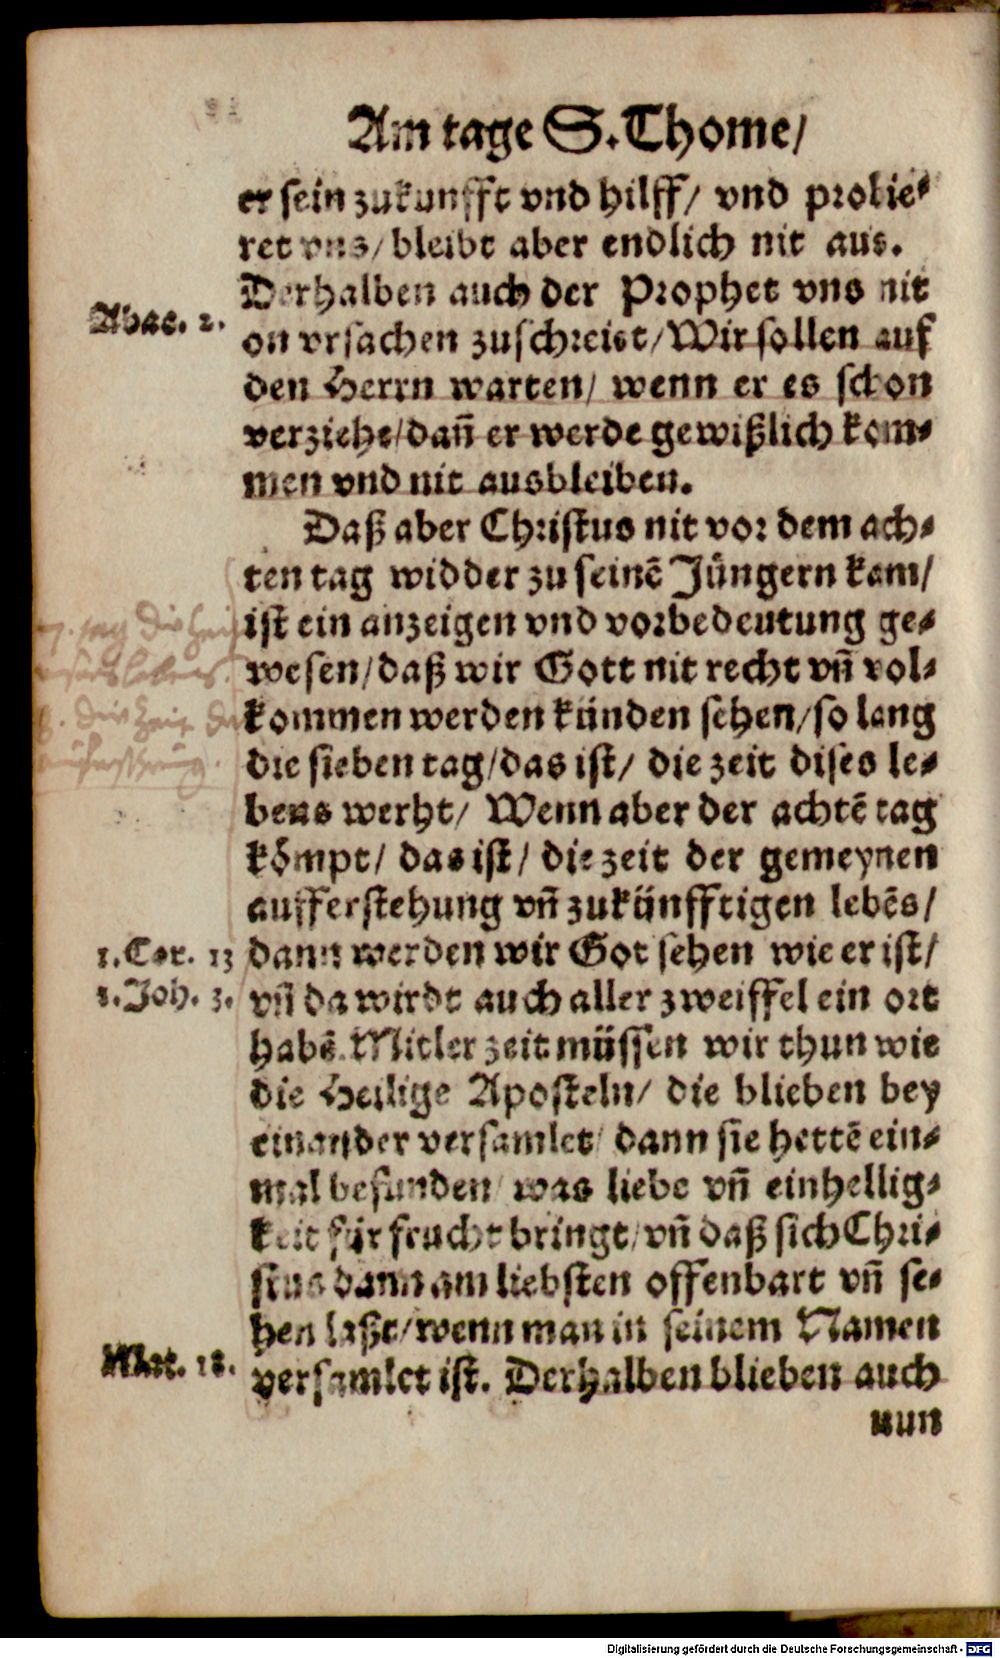 Am tage S. Thome/
er sein zukunfft vnd hilff/ vnd probie-
ret vns/ bleibt aber endlich nit aus.
Derhalben auch der Prophet vns nit
Abac. 2.
on vrsachen zuschreiet/ Wir sollen auf
den Herrn warten/ wenn er es schon
verziehe/ dañ er werde gewißlich kom-
men vnd nit ausbleiben.
Daß aber Christus nit vor dem ach-
ten tag widder zu seinē Jüngern kam/
ist ein anzeigen vnd vorbedeutung ge-
wesen/ daß wir Gott nit recht vñ vol-
kommen werden künden sehen/ so lang
die sieben tag/ das ist/ die zeit dises le-
bens werht/ Wenn aber der achtē tag
kömpt/ das ist/ die zeit der gemeynen
aufferstehung vñ zukünfftigen lebēs/
7. tag die Zeit
8. die Zeit der
1. Cor. 13
dann werden wir Got sehen wie er ist/
1. Joh. 3.
vñ da wirdt auch aller zweiffel ein ort
habē. Mitler zeit müssen wir thun wie
die Heilige Aposteln/ die blieben bey
einander versamlet/ dann sie hettē ein-
mal befunden/ was liebe vñ einhellig-
keit für frucht bringt/ vñ daß sich Chri-
stus dann am liebsten offenbart vñ se-
hen laßt/ wenn man in seinem Namen
Mat. 18.
versamlet ist. Derhalben blieben auch
nun
Digitalisierung gefördert durch die Deutsche Forschungsgemeinschaft - DFG